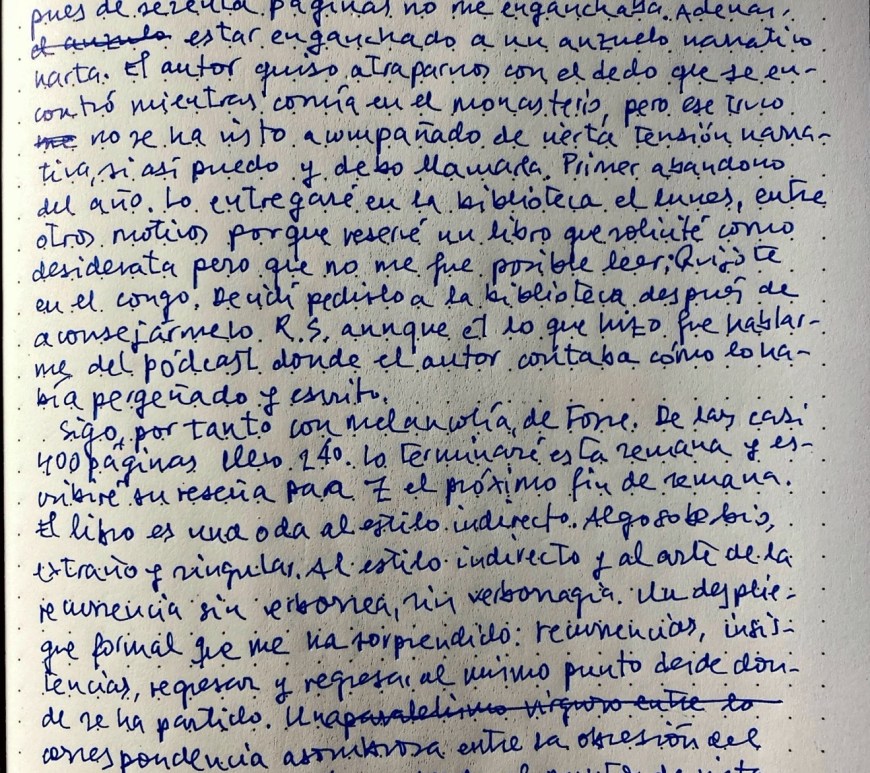 pués de sesenta páginas no me enganchaba. Además,
el anzuelo estar enganchado a un anzuelo narrativo
harta. El autor quiso atraparnos con el dedo que se en-
contró mientras comía en el monasterio, pero ese truco
me no se ha visto acompañado de cierta tensión narra-
tiva, si así puedo y debo llamarla. Primer abandono
del año. Lo entregaré en la biblioteca el lunes, entre
otros motivos porque reservé un libro que solicité como
desiderata pero que no me fue posible leer: Quijote
en el congo. Decidí pedirlo a la biblioteca después de
aconsejármelo R.S. aunque él lo que hizo fue hablar-
me del pódcast donde el autor contaba cómo lo ha-
bía pergeñado y escrito.
Sigo, por tanto con melancolía, de Fosse. De las casi
400 páginas llevo 240. Lo terminaré esta semana y es-
cribiré su reseña para Z el próximo fin de semana.
El libro es una oda al estilo indirecto. Algo soberbio,
extraño y singular. Al estilo indirecto y al arte de la
recurrencia sin verborrea, sin verborragia. Un desplie-
gue formal que me ha sorprendido: recurrencias, insis-
tencias, regresar y regresar al mismo punto desde don-
de se ha partido. Una paralelismo riguroso entre lo
correspondencia asombrosa entre la obsesión del